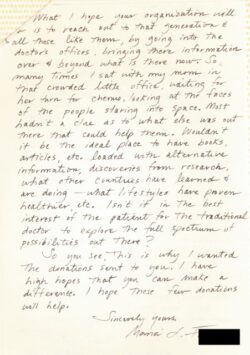 What I hope your organization will
do is to reach out to that generation &
all those like them, by going into the
doctor's offices, bringing them information
over & beyond what is there now. So,
many times I sat with my mom in
that crowded little office, waiting for
her turn for chemo, looking at the faces
of the people staring into space. Most
hadn't a clue as to what else was out
there that could help them. Wouldn't
it be the ideal place to have books,
articles, etc. loaded with alternative
information, discoveries from research,
what other countries have learned &
are doing - what lifestyles have proven
healthier, etc. Isn't it in the best
interest of the patient for the traditional
doctor to explore the full spectrum of
possibilities out there?
So you see, this is why I wanted
the donations sent to you. I have
high hopes that you can make a
difference. I hope these few donations
will help.
Sincerely yours,
Maria J.